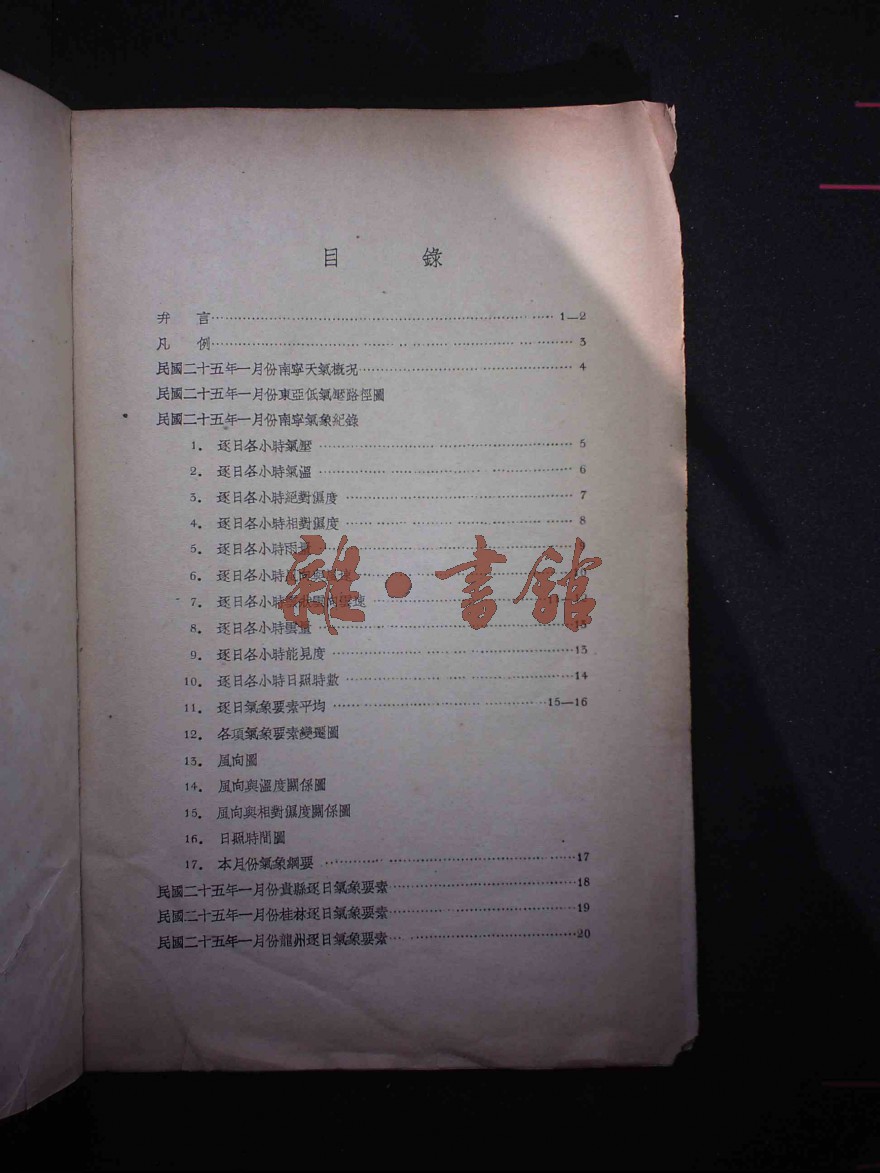 目 錄
弁 言 1—2
凡 例 3
民國二十五年一月份南寧天氣概况 4
民國二十五年一月份東亞低氣壓路徑圖
民國二十五年一月份南寧氣象紀錄
1. 逐日各小時氣壓 5
2. 逐日各小時氣溫 6
3. 逐日各小時絕對濕度 7
4. 逐日各小時相對濕度 8
5. 逐日各小時雨量
6. 逐日各小時風向與
7. 逐日各小時 向雲速
8. 逐日各小時雲量
9. 逐日各小時能見度 13
10. 逐日各小時日照時數 14
11. 逐日氣象要素平均 15—16
12. 各項氣象要素變遷圖
13. 風向圖
14. 風向與溫度關係圖
15. 風向與相對濕度關係圖
16. 日照時間圖
17. 本月份氣象綱要 17
民國二十五年一月份貴縣逐日氣象要素 18
民國二十五年一月份桂林逐日氣象要素 19
民國二十五年一月份龍州逐日氣象要素 20
雜·書館